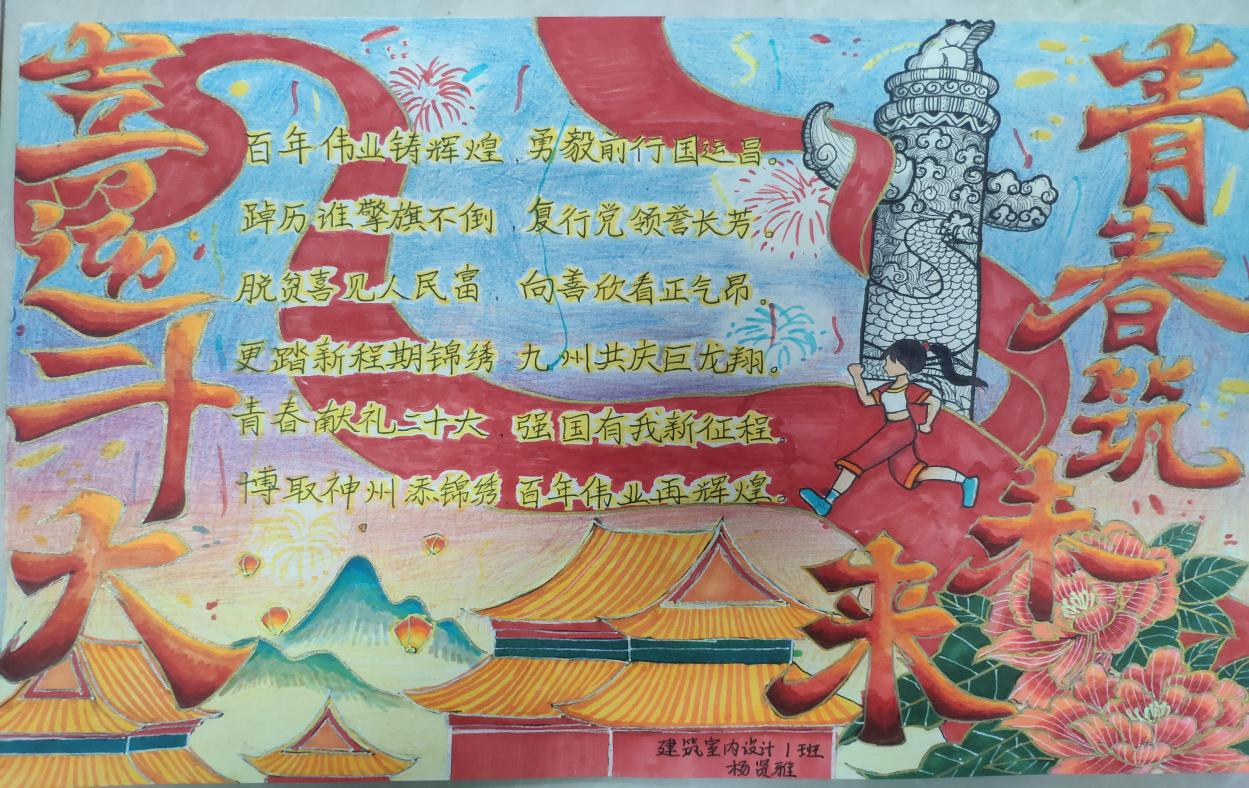 喜迎二十大
百年伟业铸辉煌，勇毅前行国运昌。
踔历谁擎旗不倒 复行党领誉长芳。
脱贫喜见人民富 向善欣看正气昂。
更踏新程期锦绣 九州共庆巨龙翔。
青春献礼二十大 强国有我新征程。
博取神州添锦绣 百年伟业再辉煌。
青春筑未来
建筑室内设计1班
杨贤雅